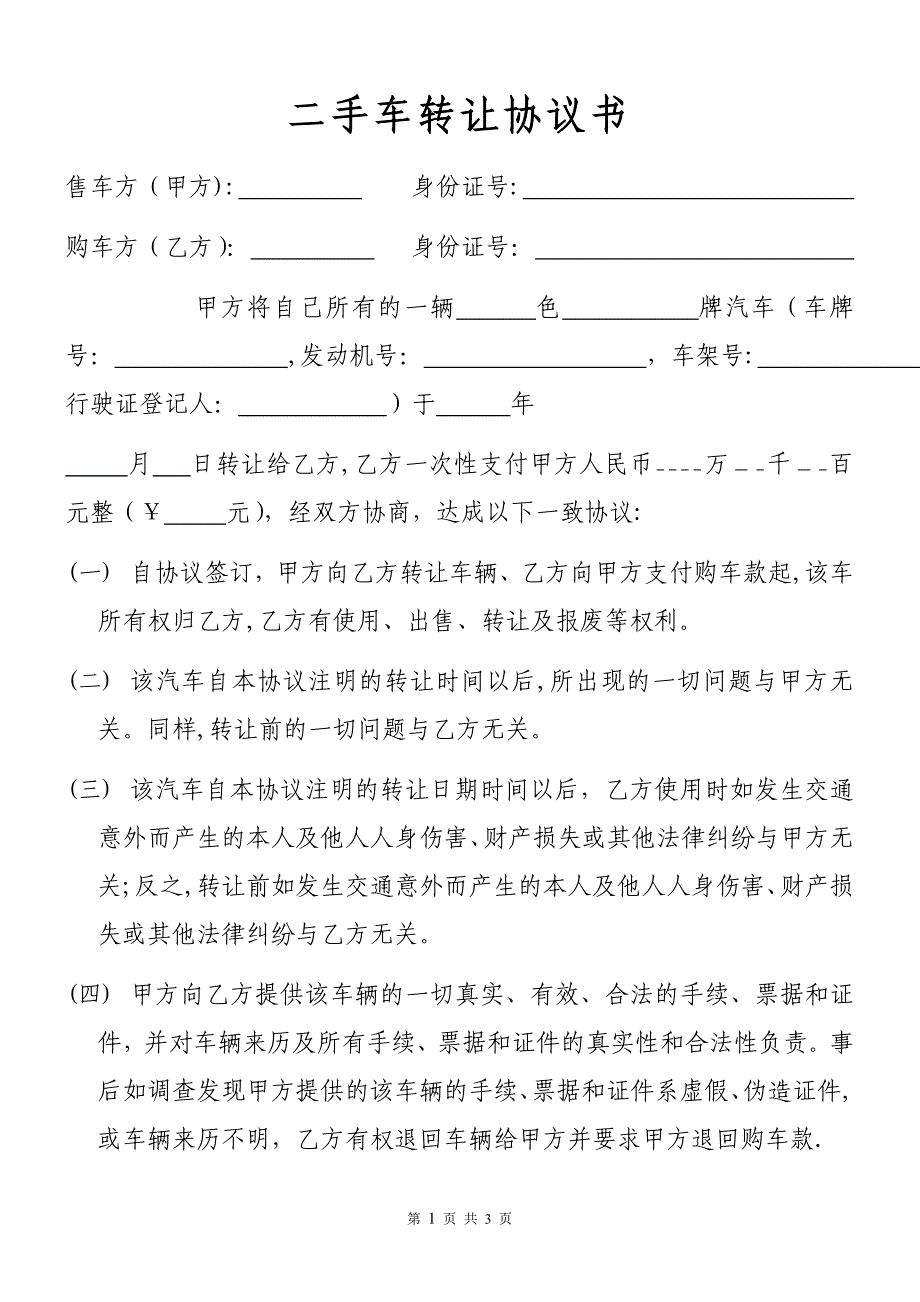 二手车转让协议书
售车方（甲方）：__________ 身份证号：__________________________
购车方（乙方）：__________ 身份证号：_________________________
甲方将自己所有的一辆______色___________牌汽车（车牌
号：______________,发动机号：__________________，车架号:_____________
行驶证登记人：____________）于______年
_____月___日转让给乙方,乙方一次性支付甲方人民币----万_--千_--百
元整（￥_____元），经双方协商，达成以下一致协议：
(一) 自协议签订，甲方向乙方转让车辆、乙方向甲方支付购车款起,该车
所有权归乙方,乙方有使用、出售、转让及报废等权利。
(二) 该汽车自本协议注明的转让时间以后,所出现的一切问题与甲方无
关。同样,转让前的一切问题与乙方无关。
(三) 该汽车自本协议注明的转让日期时间以后，乙方使用时如发生交通
意外而产生的本人及他人人身伤害、财产损失或其他法律纠纷与甲方无
关;反之,转让前如发生交通意外而产生的本人及他人人身伤害、财产损
失或其他法律纠纷与乙方无关。
(四) 甲方向乙方提供该车辆的一切真实、有效、合法的手续、票据和证
件，并对车辆来历及所有手续、票据和证件的真实性和合法性负责。事
后如调查发现甲方提供的该车辆的手续、票据和证件系虚假、伪造证件,
或车辆来历不明，乙方有权退回车辆给甲方并要求甲方退回购车款.
第 1 页 共 3 页